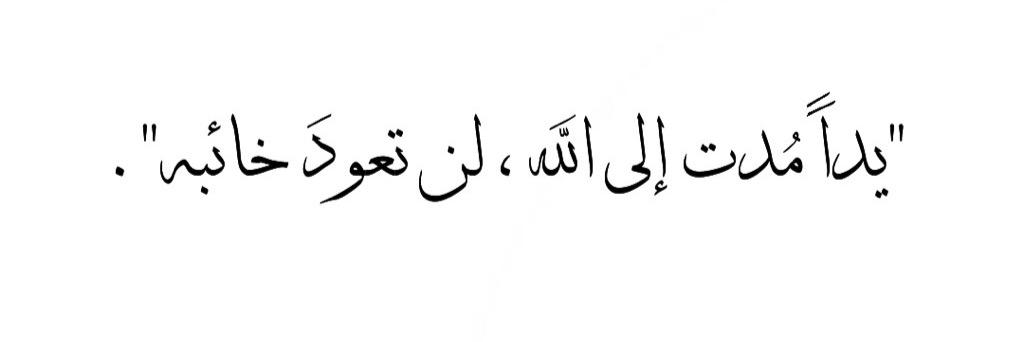 "يداً مُدت إلى الله ، لن تعودَ خائبه" .